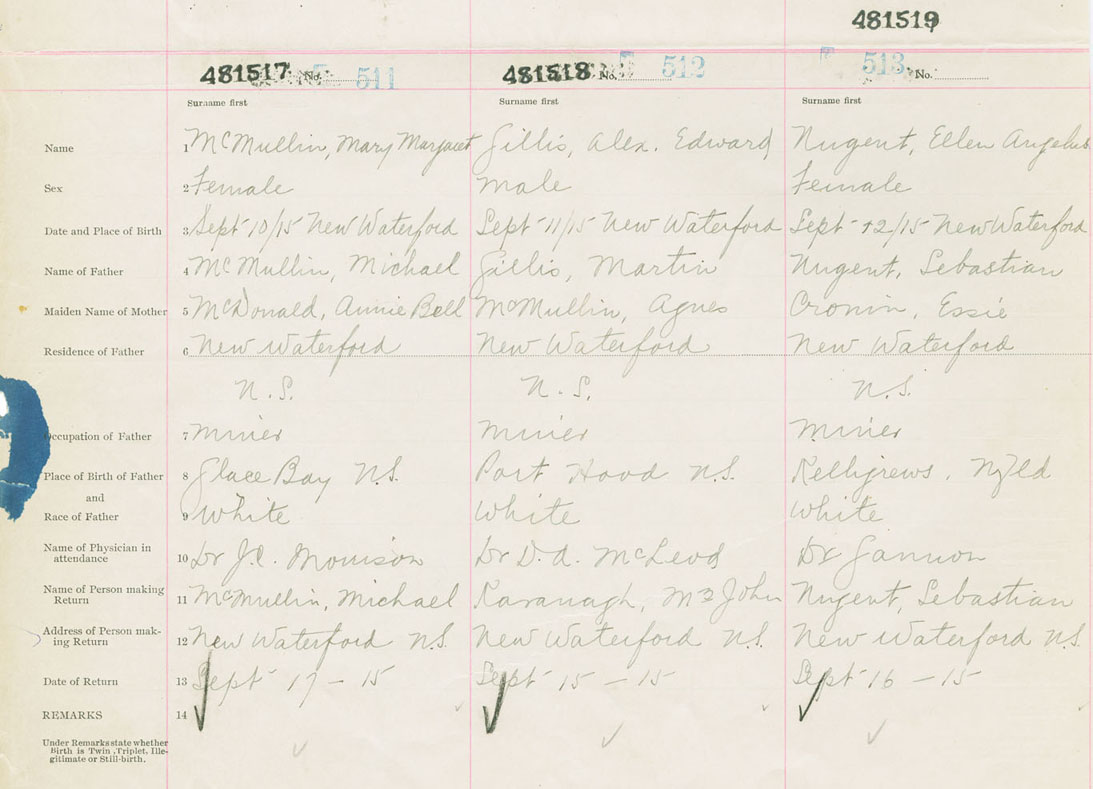 481519
481517 No. 511 481518 No. 512 513 No.
Surname first Surname first Surname first
Name 1 McMullin, Mary Margaret Gillis, Alex. Edward Nugent, Ellen
Sex 2 Female Male Female
Date and Place of Birth 3 Sept 10/15 New Waterford Sept 11/15 New Waterford Sept 12/15 New Waterford
Name of Father 4 McMullin, Michael Gillis, Martin Nugent, Sebastian
Maiden Name of Mother 5 McDonald, Annie Bell McMullin, Agnes Cronin, Essie
Residence of Father 6 New Waterford New Waterford New Waterford
N.S. N.S. N.S.
Occupation of Father 7 Miner Miner Miner
Place of Birth of Father 8 Glace Bay N.S. Port Hood N.S. Kelligrews, Nfld
and
Race of Father 9 White White White
Name of Physician in
attendance 10 Dr J.C. Morrison Dr D.A. McLeod Dr Gannon
Name of Person making
Return 11 McMullin, Michael Kavanagh, Mrs John Nugent, Sebastian
Address of Person mak-
ing Return 12 New Waterford N.S. New Waterford N.S. New Waterford N.S.
Date of Return 13 Sept 17 - 15 Sept 15 - 15 Sept 16 - 15
REMARKS 14
Under Remarks state whether
Birth is Twin, Triplet, Ille-
gitimate or Still-birth.